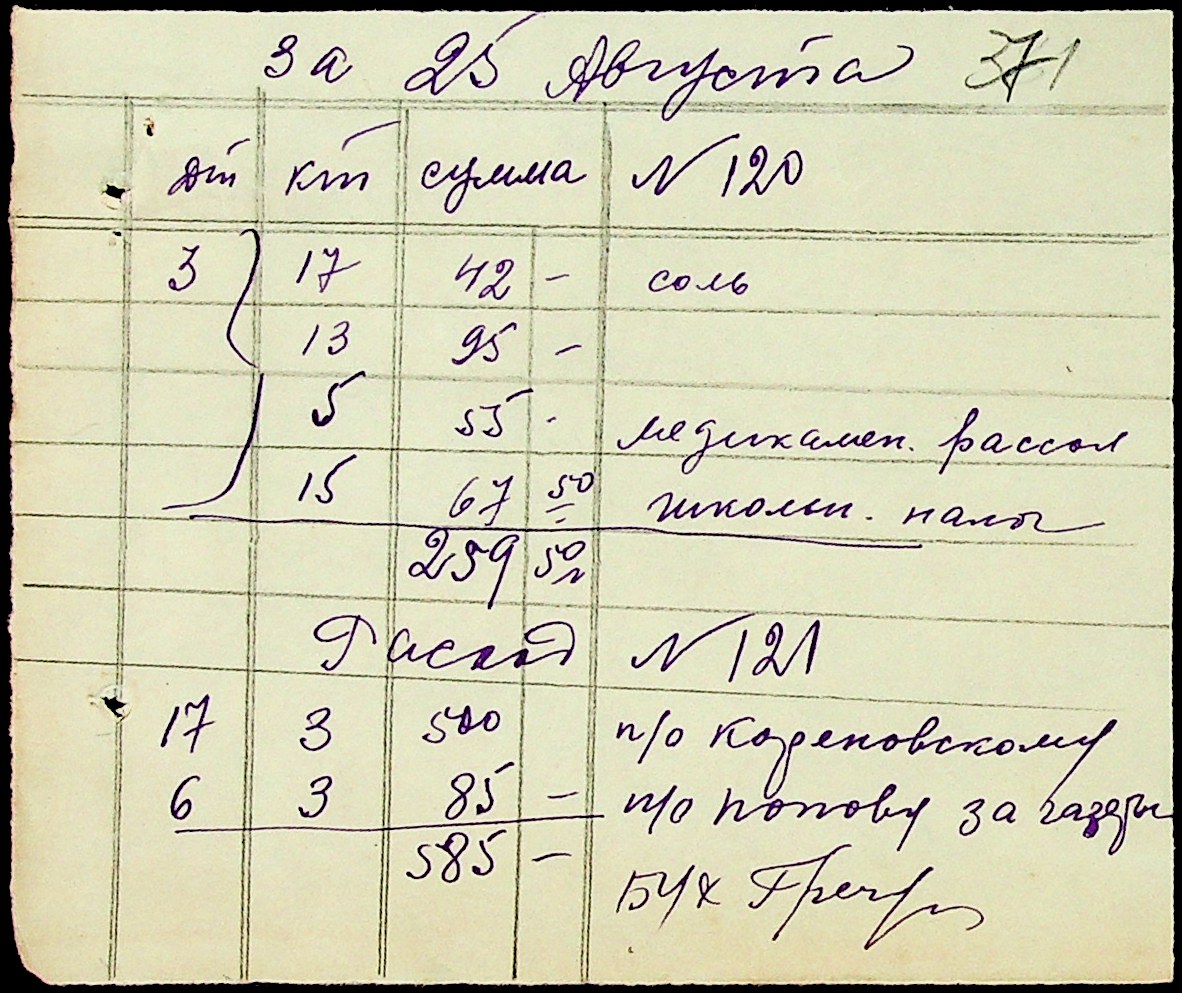 за 25 Августа 371
дт кт сумма N 120
3 17 42 - соль
13 95 -
5 55 - медикамен. рассол
15 67 50 школьн. налог
259 50
Расход N 121
17 3 500 п/о Кореновскому
6 3 85 - п/о Попову за газеты
585 -
Бух